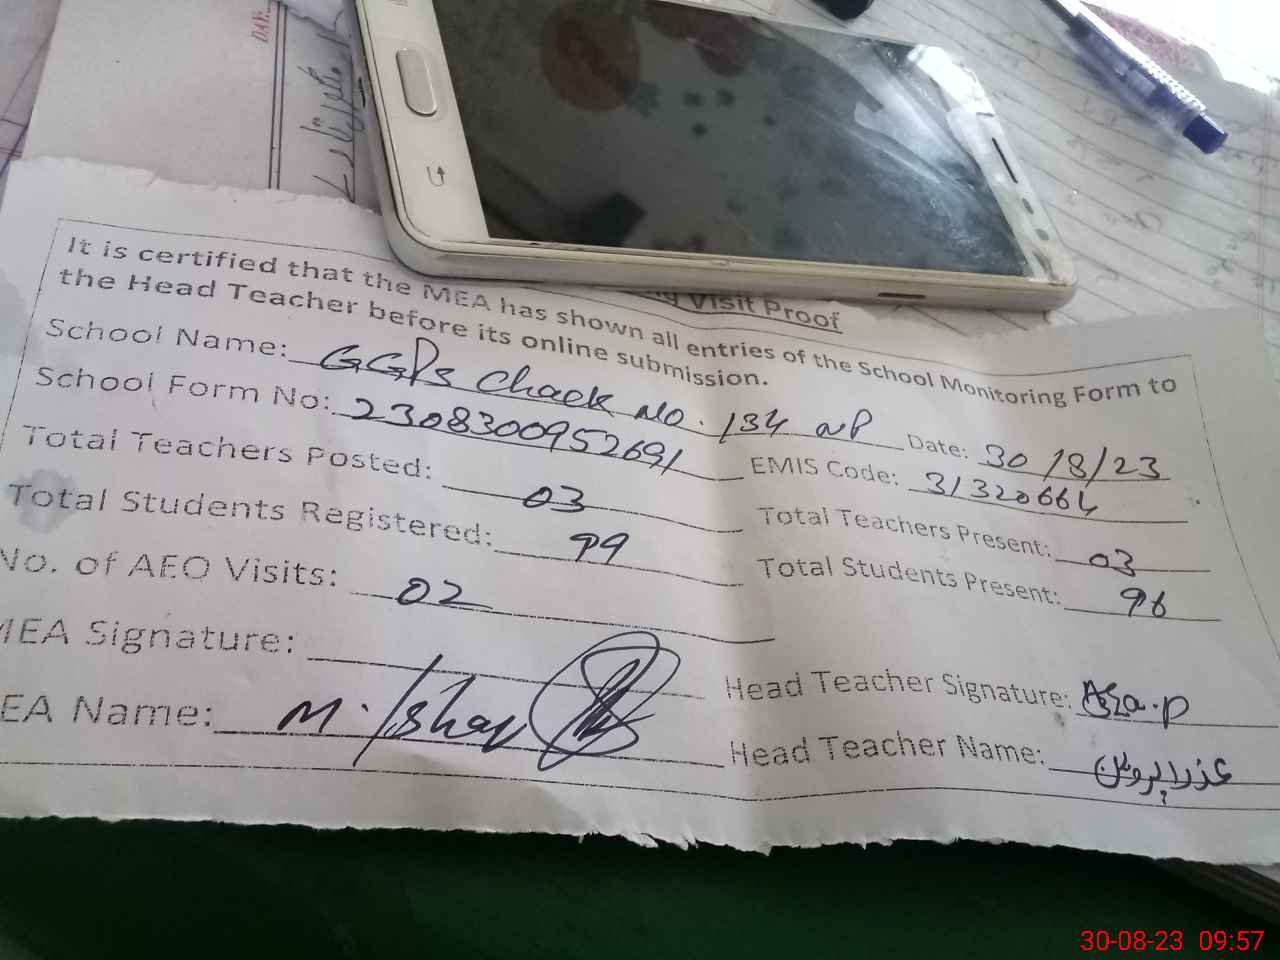 DAY
Visit Proof
It is certified that the MEA has shown all entries of the School Monitoring Form to
the Head Teacher before its online submission.
School Name: GGPS Chack No. 134 NP Date: 30/8/23
School Form No: 2308300952691 EMIS Code: 31320664
Total Teachers Posted: 03 Total Teachers Present: 03
Total Students Registered: 99 Total Students Present: 96
No. of AEO Visits: 02
MEA Signature: Head Teacher Signature: Asza.P
EA Name: M. Ishaq Head Teacher Name: عذرا پروین
30-08-23 09:57